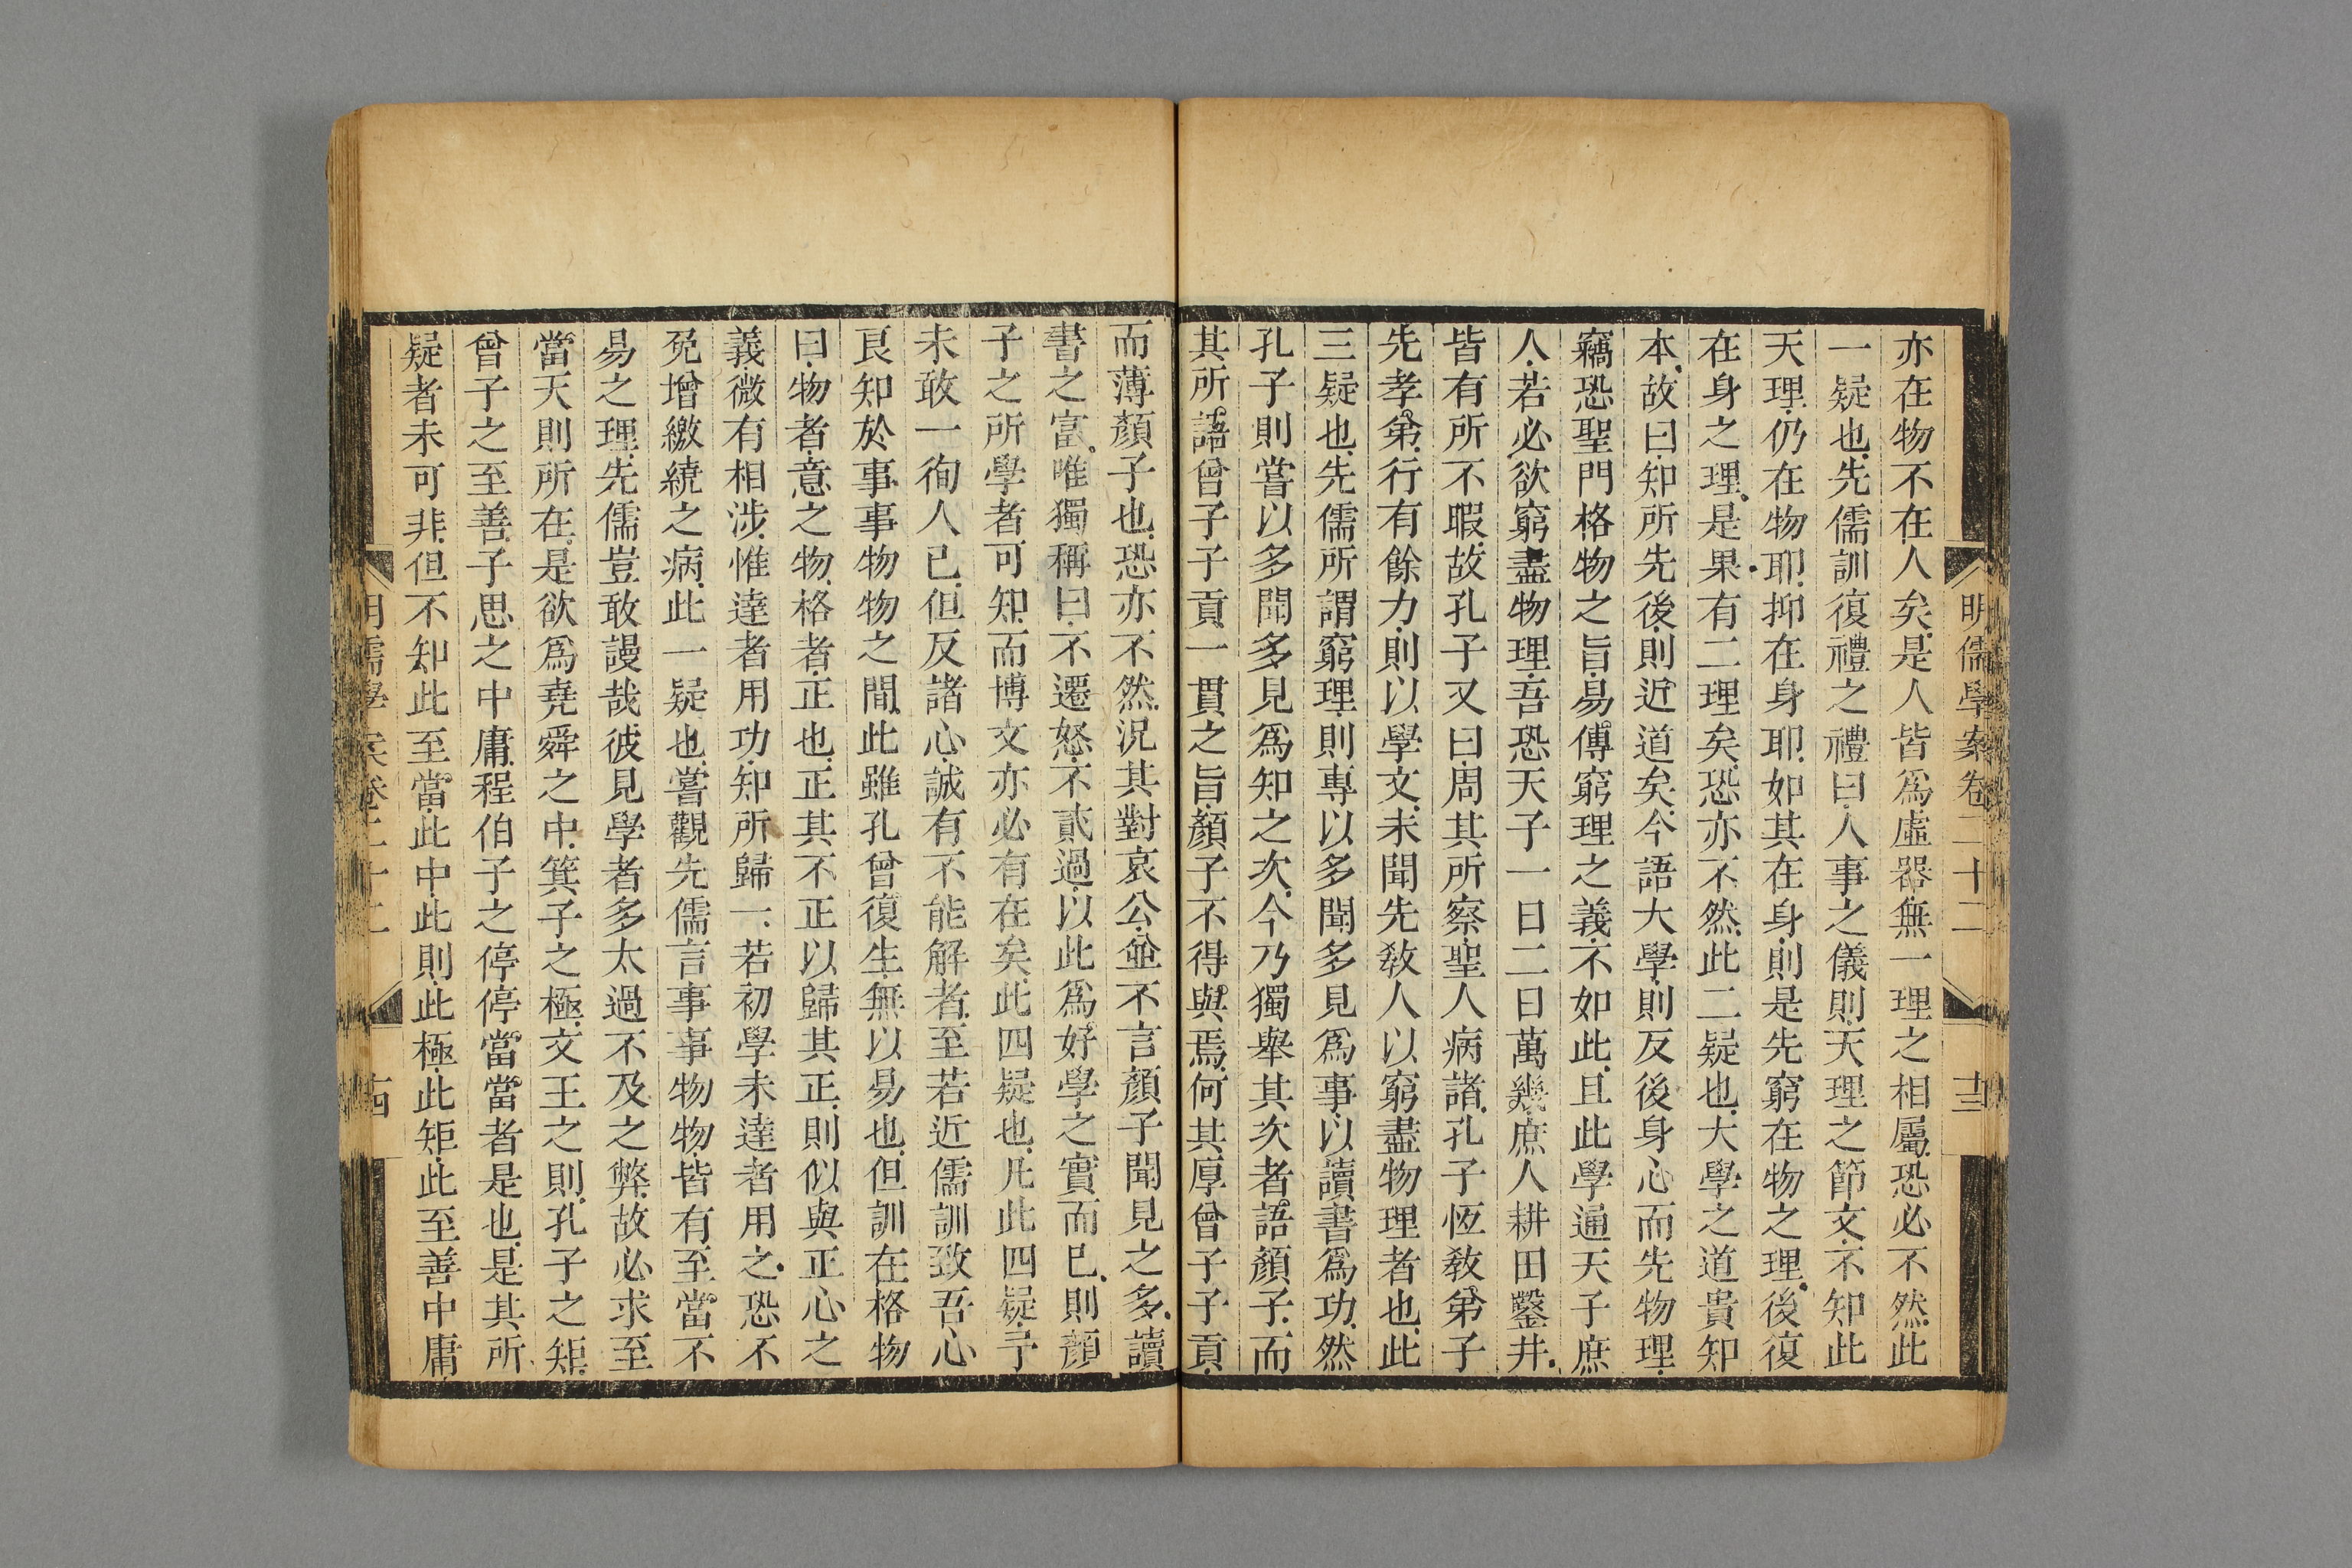 明儒學案卷二十二
十三
亦在物不在人矣是人皆爲虛器無一理之相屬恐必不然此
一疑也先儒訓復禮之禮曰人事之儀則天理之節文不知此
天理仍在物耶抑在身耶如其在身則是先窮在物之理後復
在身之理是果有二理矣恐亦不然此二疑也大學之道貴知
本故曰知所先後則近道矣今語大學則反後身心而先物理
竊恐聖門格物之旨易傳窮理之義不如此且此學通天子庶
人若必欲窮盡物理吾恐天子一日二日萬幾庶人耕田鑿井
皆有所不暇故孔子又曰周其所察聖人病諸孔子恆敎弟子
先孝弟行有餘力則以學文未聞先敎人以窮盡物理者也此
三疑也先儒所謂窮理則專以多聞多見爲事以讀書爲功然
孔子則嘗以多聞多見爲知之次今乃獨舉其次者語顏子而
其所語曾子子貢一貫之旨顏子不得與焉何其厚曾子子貢
而薄顏子也恐亦不然況其對哀公並不言顏子聞見之多讀
書之富唯獨稱曰不遷怒不貳過以此爲好學之實而已則顏
子之所學者可知而博文亦必有在矣此四疑也凡此四疑予
未敢一徇人已但反諸心誠有不能解者至若近儒訓致吾心
良知於事事物物之間此雖孔曾復生無以易也但訓在格物
曰物者意之物格者正也正其不正以歸其正則似與正心之
義微有相涉惟達者用功知所歸一若初學未達者用之恐不
免增繳繞之病此一疑也嘗觀先儒言事事物物皆有至當不
易之理先儒豈敢謾哉彼見學者多太過不及之弊故必求至
當天則所在是欲爲堯舜之中箕子之極文王之則孔子之矩
曾子之至善子思之中庸程伯子之停停當當者是也是其所
疑者未可非但不知此至當此中此則此極此矩此至善中庸
明儒學案卷二十二
十四